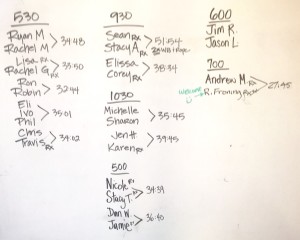 530
Ryan M
Rachel M
34:48
Lisa RX
Rachel G RX
33:50
Ron
Robin
32:44
Eli
Ivo
Phil
35:01
Chris
Travis RX
34:02
930
Sean RX
Stacy A RX
51:54
Elissa
Corey RX
38:34
1030
Michelle
Sharon
35:45
Jen H
Karen RX
39:45
500
Nicole RX
Stacy T. RX
34:39
Dan W.
Jamie
36:40
600
Jim R.
Jason L
700
Andrew M. RX
R. Froning
27:45
Welcome